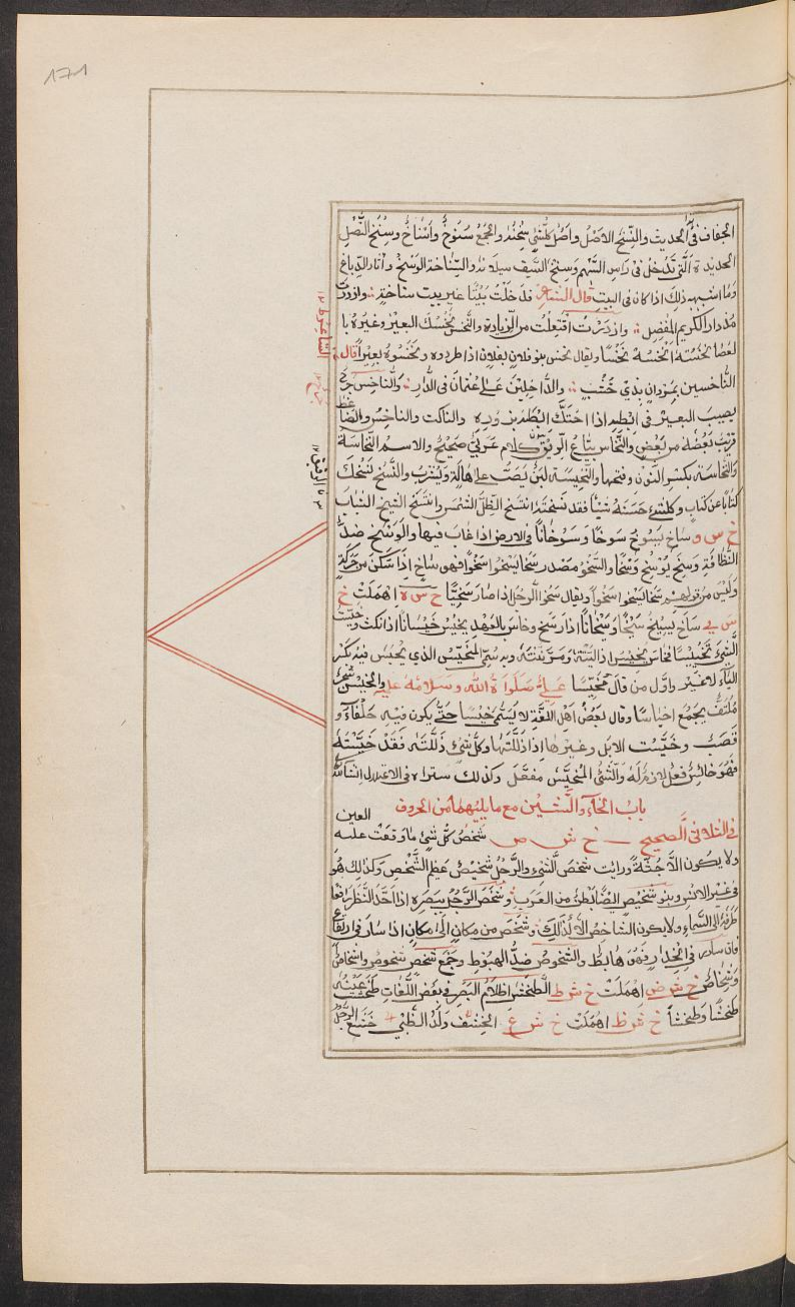 171
الجفاف في الحديث والسنخ الاصل واصل كل شئ سنخه والجمع سنوخ واسناخ وسنخ النصل
الحديدة التي تدخل في راس السهم وسنخ السيف سيلانه والسناخة الوسخ واثار الدباغ
وما اشبهه ذلك اذا كان في البيت قال الشاعر فدخلت بيتا غير بيت سناخة وازدرت
مزدار الكريم المفضل وازدرت افتعلت من الزيادة والنخس نخسك البعير وغيره با
لعصا نخسته انخسه نخسا ويقال نخس بنو فلان بفلان اذا طردوه ونخسوا به بعيرا قال
الناخسين بمروان بذي خشب والداخلين على عثمان في الدار والناخس جرح
يصيب البعير في ابطه اذا احتك ابطه بزوره والناكت والناخس والضاغط
قريب بعضه من بعض والنخاس بياع الرقيق كلام عربي صحيح والاسم النخاسة
والنخاسة بكسر النون وفتحها والنخيسة لبن يصب على اهالة ويشرب والنسخ نسخك
كتابا عن كتاب وكل شئ حسنه شيئا فقد نسخته انتسخ الظل الشمس وانتسخ الشيخ الشباب
خ س و ساخ يسوخ سوخا وسوخانا في الارض اذا غاب فيها والوسخ ضد
النظافة وسخ يوسخ وسخا والسخو مصدر سخا يسخوا سخوا فهو ساخ اذا سكن من حركة
وليس من قولهم سخا يسخوا سخوا ويقال سخوا الرجل اذا صار سخيا خ س ه اهملت خ
س ي ساخ يسيخ سيخا وسيخانا اذا رسخ وخاس بالعهد يخيس خيسانا اذا نكث وخيست
الشئ تخييسا فخاس يخيس اذا لينته ومرنته وبه سمي المخيس الذي يحبس فيه بكسر
الياء لا غير واول من قال مخيسا علي صلواة الله وسلامه عليه والخيس شجر
ملتف يجمع اخياسا وقال بعض اهل اللغة لا يسمى خيسا حتى يكون فيه حلفاء و
قصب وخيست الابل وغيرها اذا ذللتها وكل شئ ذللته فقد خيسته
فهو خائس فعل لازم له والشئ المخيس مفعل وكذلك ستراه في الاعتدل انشاالله
باب الخاء والشين مع ما يليهما من الحروف
في الثلاثي الصحيح خ ش ص شخص كل شئ ما وقعت عليه العين
ولا يكون الا جثة ورايت شخص الشئ والرجل شخيص عظيم الشخص وكذلك هو
في غير الانس وبنو شخيص الضابطن من العرب وشخص الرجل ببصره اذا احد النظر رافعا
طرفه الى السماء ولا يكون الشاخص الا كذلك وشخص من مكان الى مكان اذا سار في ارتفاع
فان سار في انحدار فهو هابط والشخوص ضد الهبوط وجمع شخص شخوص واشخاص
وشخاص خ ش ض اهملت خ ش ط الطخش اظلام البصر في بعض اللغات طخشت عينه
طخشا وطخشا خ ش ظ اهملت خ ش ع الخشف ولد الظبي خشع الرجل
الشاعر
الرقيق